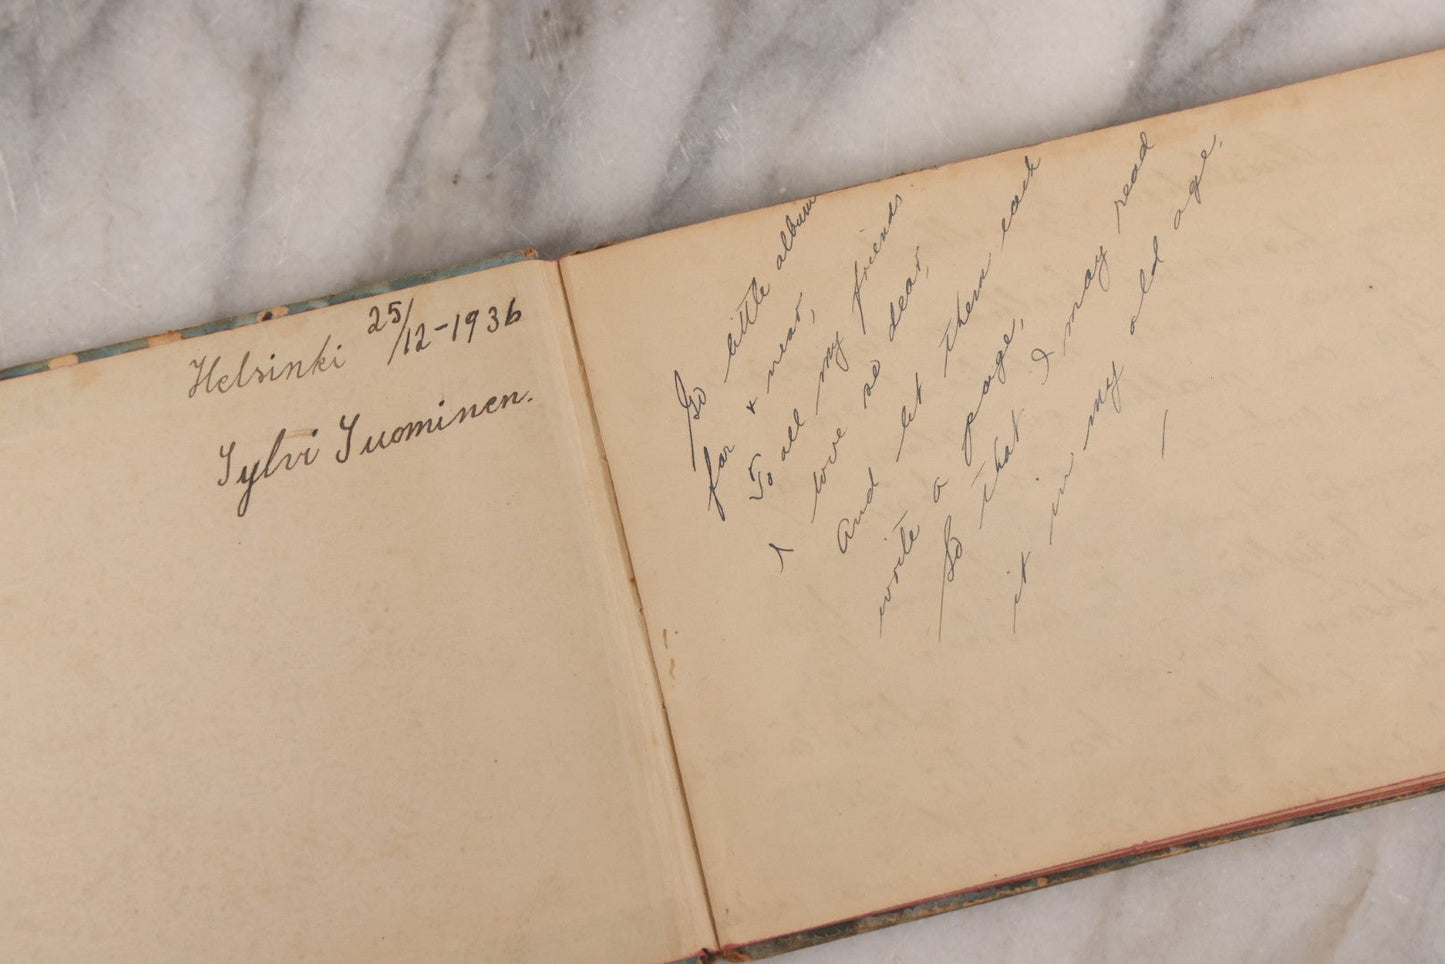 Helsinki 25/12-1936
Sylvi Suominen.
Go little album
far & near,
To all my friends
I love so dear,
And let them each
write a page,
So that I may read
it in my old age,